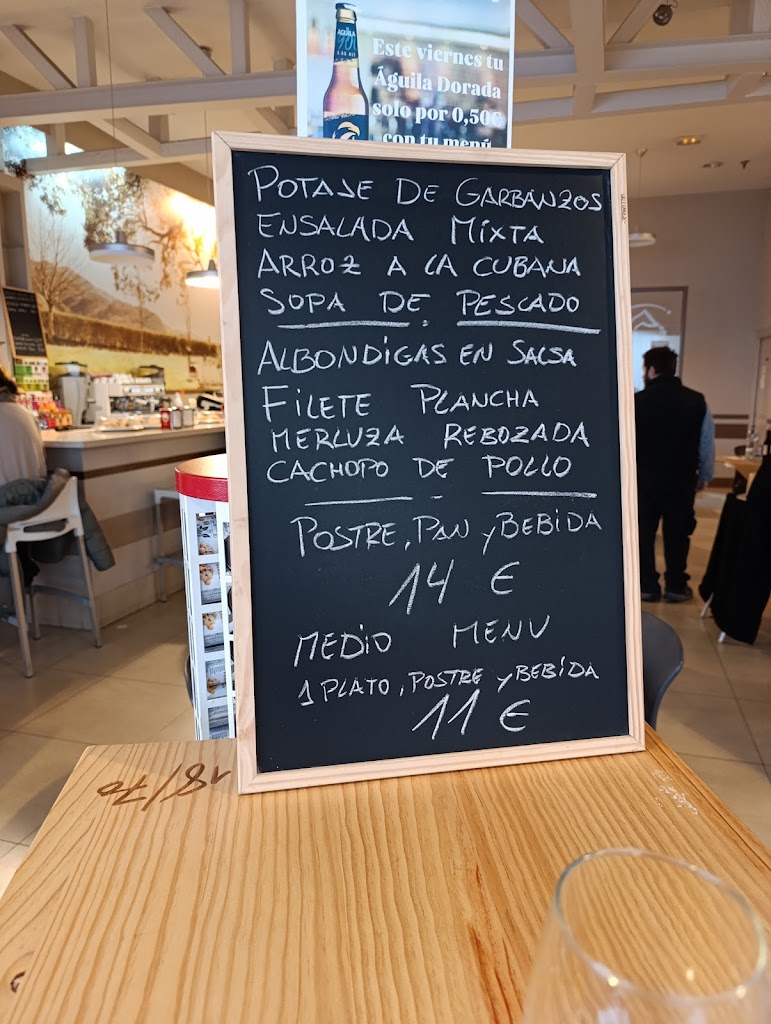 ÁGUILA
Este viernes tu
Águila Dorada
solo por 0,50€
con tu menú
POTAJE DE GARBANZOS
ENSALADA MIXTA
ARROZ A LA CUBANA
SOPA DE PESCADO
ALBONDIGAS EN SALSA
FILETE PLANCHA
MERLUZA REBOZADA
CACHOPO DE POLLO
POSTRE, PAN y BEBIDA
14 €
MEDIO MENU
1 PLATO, POSTRE y BEBIDA
11 €
18/70